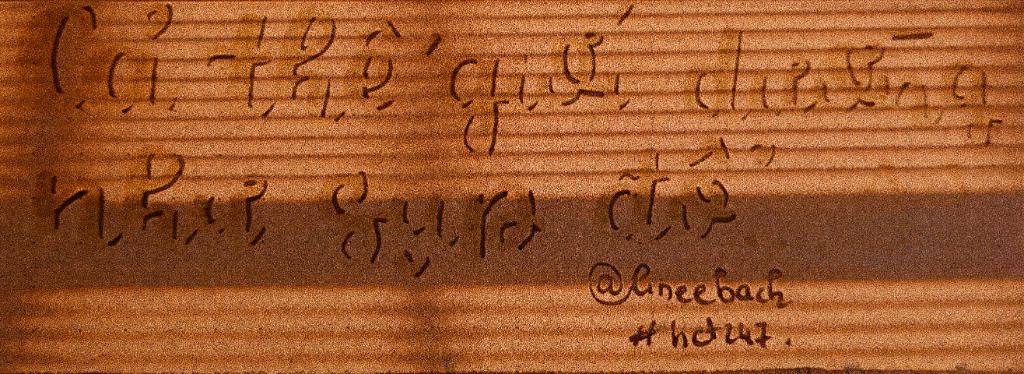 Cả thế giới dường
như sụp đổ
@lineebach
#hct247.